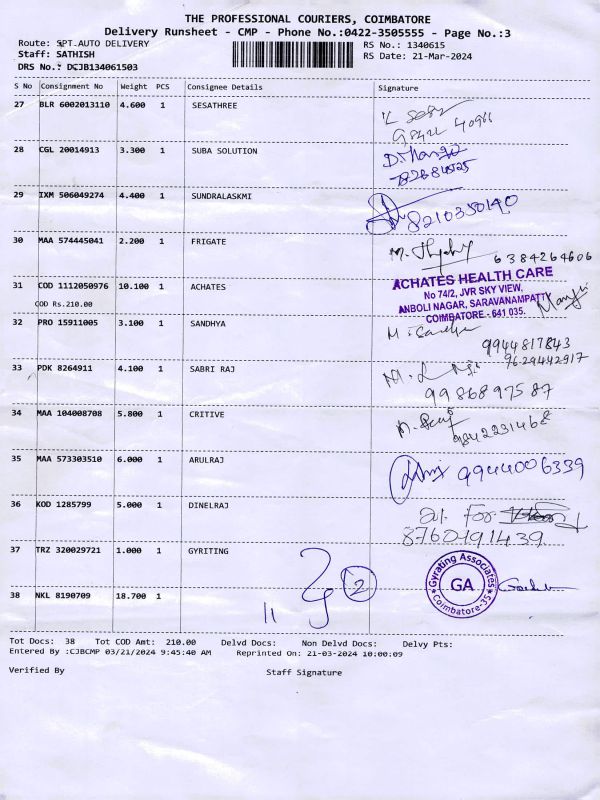 THE PROFESSIONAL COURIERS, COIMBATORE
Delivery Runsheet - CMP - Phone No.:0422-3505555 - Page No.:3
Route: SPT.AUTO DELIVERY
RS No.: 1340615
Staff: SATHISH
RS Date: 21-Mar-2024
DRS No.: DCJB134061503
S No Consignment No Weight PCS Consignee Details Signature
27 BLR 6002013110 4.600 1 SESATHREE
28 CGL 20014913 3.300 1 SUBA SOLUTION
29 IXM 506049274 4.400 1 SUNDRALASKMI
8210350140
30 MAA 574445041 2.200 1 FRIGATE
6384264606
31 COD 1112050976 10.100 1 ACHATES
COD Rs.210.00
ACHATES HEALTH CARE
No 74/2, JVR SKY VIEW,
ANBOLI NAGAR, SARAVANAMPATTY
COIMBATORE - 641 035.
32 PRO 15911005 3.100 1 SANDHYA
9944817843
9629442917
33 PDK 8264911 4.100 1 SABRI RAJ
9986897587
34 MAA 104008708 5.800 1 CRITIVE
9842231468
35 MAA 573303510 6.000 1 ARULRAJ
9944006339
36 KOD 1285799 5.000 1 DINELRAJ
8760491439
37 TRZ 320029721 1.000 1 GYRITING
Gyrating Associates
GA
Coimbatore-35
2
38 NKL 8190709 18.700 1
Tot Docs: 38 Tot COD Amt: 210.00 Delvd Docs: Non Delvd Docs: Delvy Pts:
Entered By :CJBCMP 03/21/2024 9:45:40 AM Reprinted On: 21-03-2024 10:00:09
Verified By Staff Signature